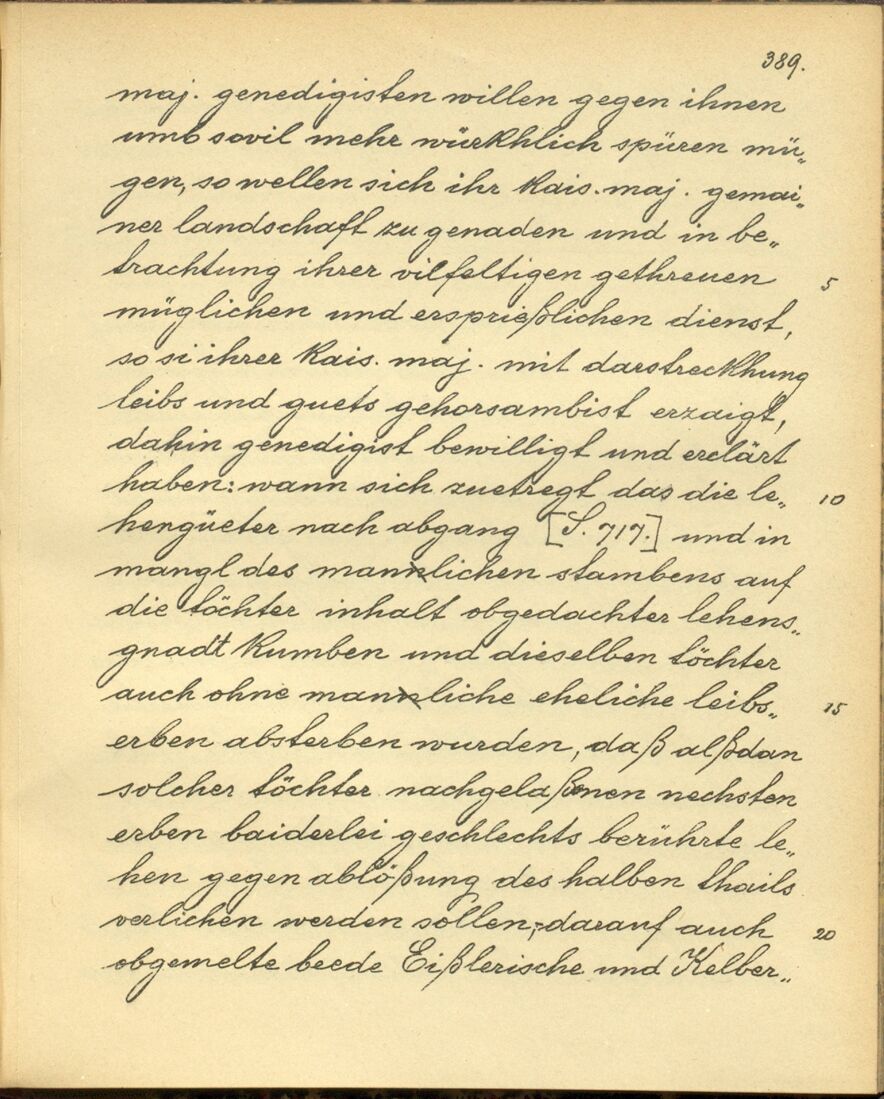 389.
maj. genedigisten willen gegen ihnen
umb sovil mehr würkhlich spüren mü„
gen, so wellen sich ihr kais. maj. gemai„
ner landschaft zu genaden und in be„
trachtung ihrer vilfeltigen gethreuen 5
müglichen und ersprießlichen dienst,
so si ihrer kais. maj. mit darstreckhung
leibs und guets gehorsambist erzaigt,
dahin genedigist bewilligt und erclärt
haben: wann sich zuetregt das die le„ 10
hengüeter nach abgang [S. 717.] und in
mangl des manlichen stambens auf
die töchter inhalt obgedachter lehens„
gnadt kumben und dieselben töchter
auch ohne manliche eheliche leibs„ 15
erben absterben wurden, daß alßdan
solcher töchter nachgelaßnen nechsten
erben baiderlei geschlechts berührte le„
hen gegen ablößung des halben thails
verlichen werden sollen, darauf auch 20
obgemelte beede Eißlerische und Kelber„